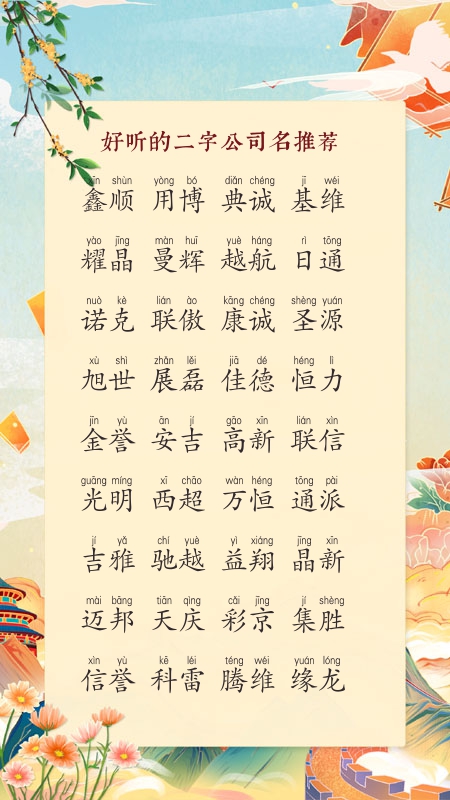 好听的二字公司名推荐
xīn shùn yòng bó diǎn chéng jī wéi
鑫顺 用博 典诚 基维
yào jīng màn huī yuè háng rì tōng
耀晶 曼辉 越航 日通
nuò kè lián ào kāng chéng shèng yuán
诺克 联傲 康诚 圣源
xù shì zhǎn lěi jiā dé héng lì
旭世 展磊 佳德 恒力
jīn yù ān jí gāo xīn lián xìn
金誉 安吉 高新 联信
guāng míng xī chāo wàn héng tōng pài
光明 西超 万恒 通派
jí yǎ chí yuè yì xiáng jīng xīn
吉雅 驰越 益翔 晶新
mài bāng tiān qìng cǎi jīng jí shèng
迈邦 天庆 彩京 集胜
xìn yù kē léi téng wéi yuán lóng
信誉 科雷 腾维 缘龙